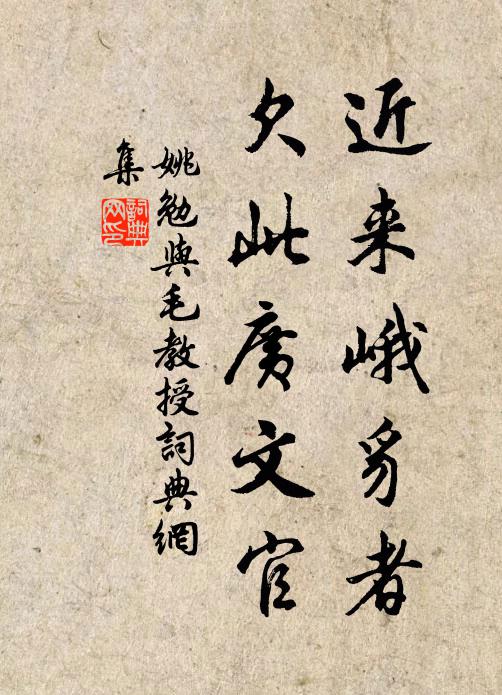 近来峨豸者
欠此廣文官
姚勉與毛教授詞典網
集
詞典
网印